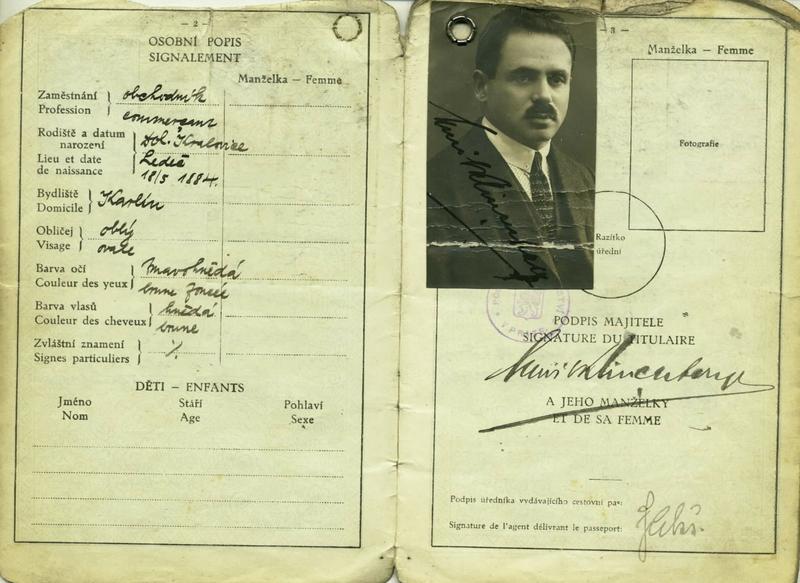 — 2 —
OSOBNÍ POPIS
SIGNALEMENT
Manželka – Femme
Zaměstnání
Profession
obchodník
commerçant
Rodiště a datum
narození
Lieu et date
de naissance
Dol. Kralovice
Ledeč
18/5 1884.
Bydliště
Domicile
Karlín
Obličej
Visage
oblý
ovale
Barva očí
Couleur des yeux
tmavohnědá
brune foncée
Barva vlasů
Couleur des cheveux
hnědá
brune
Zvláštní znamení
Signes particuliers
%
DĚTI – ENFANTS
Jméno Stáří Pohlaví
Nom Age Sexe
— 3 —
Manželka – Femme
Fotografie
Razítko
úřední
PODPIS MAJITELE
SIGNATURE DU TITULAIRE
A JEHO MANŽELKY
ET DE SA FEMME
Podpis úředníka vydávajícího cestovní pas:
Signature de l'agent délivrant le passeport: